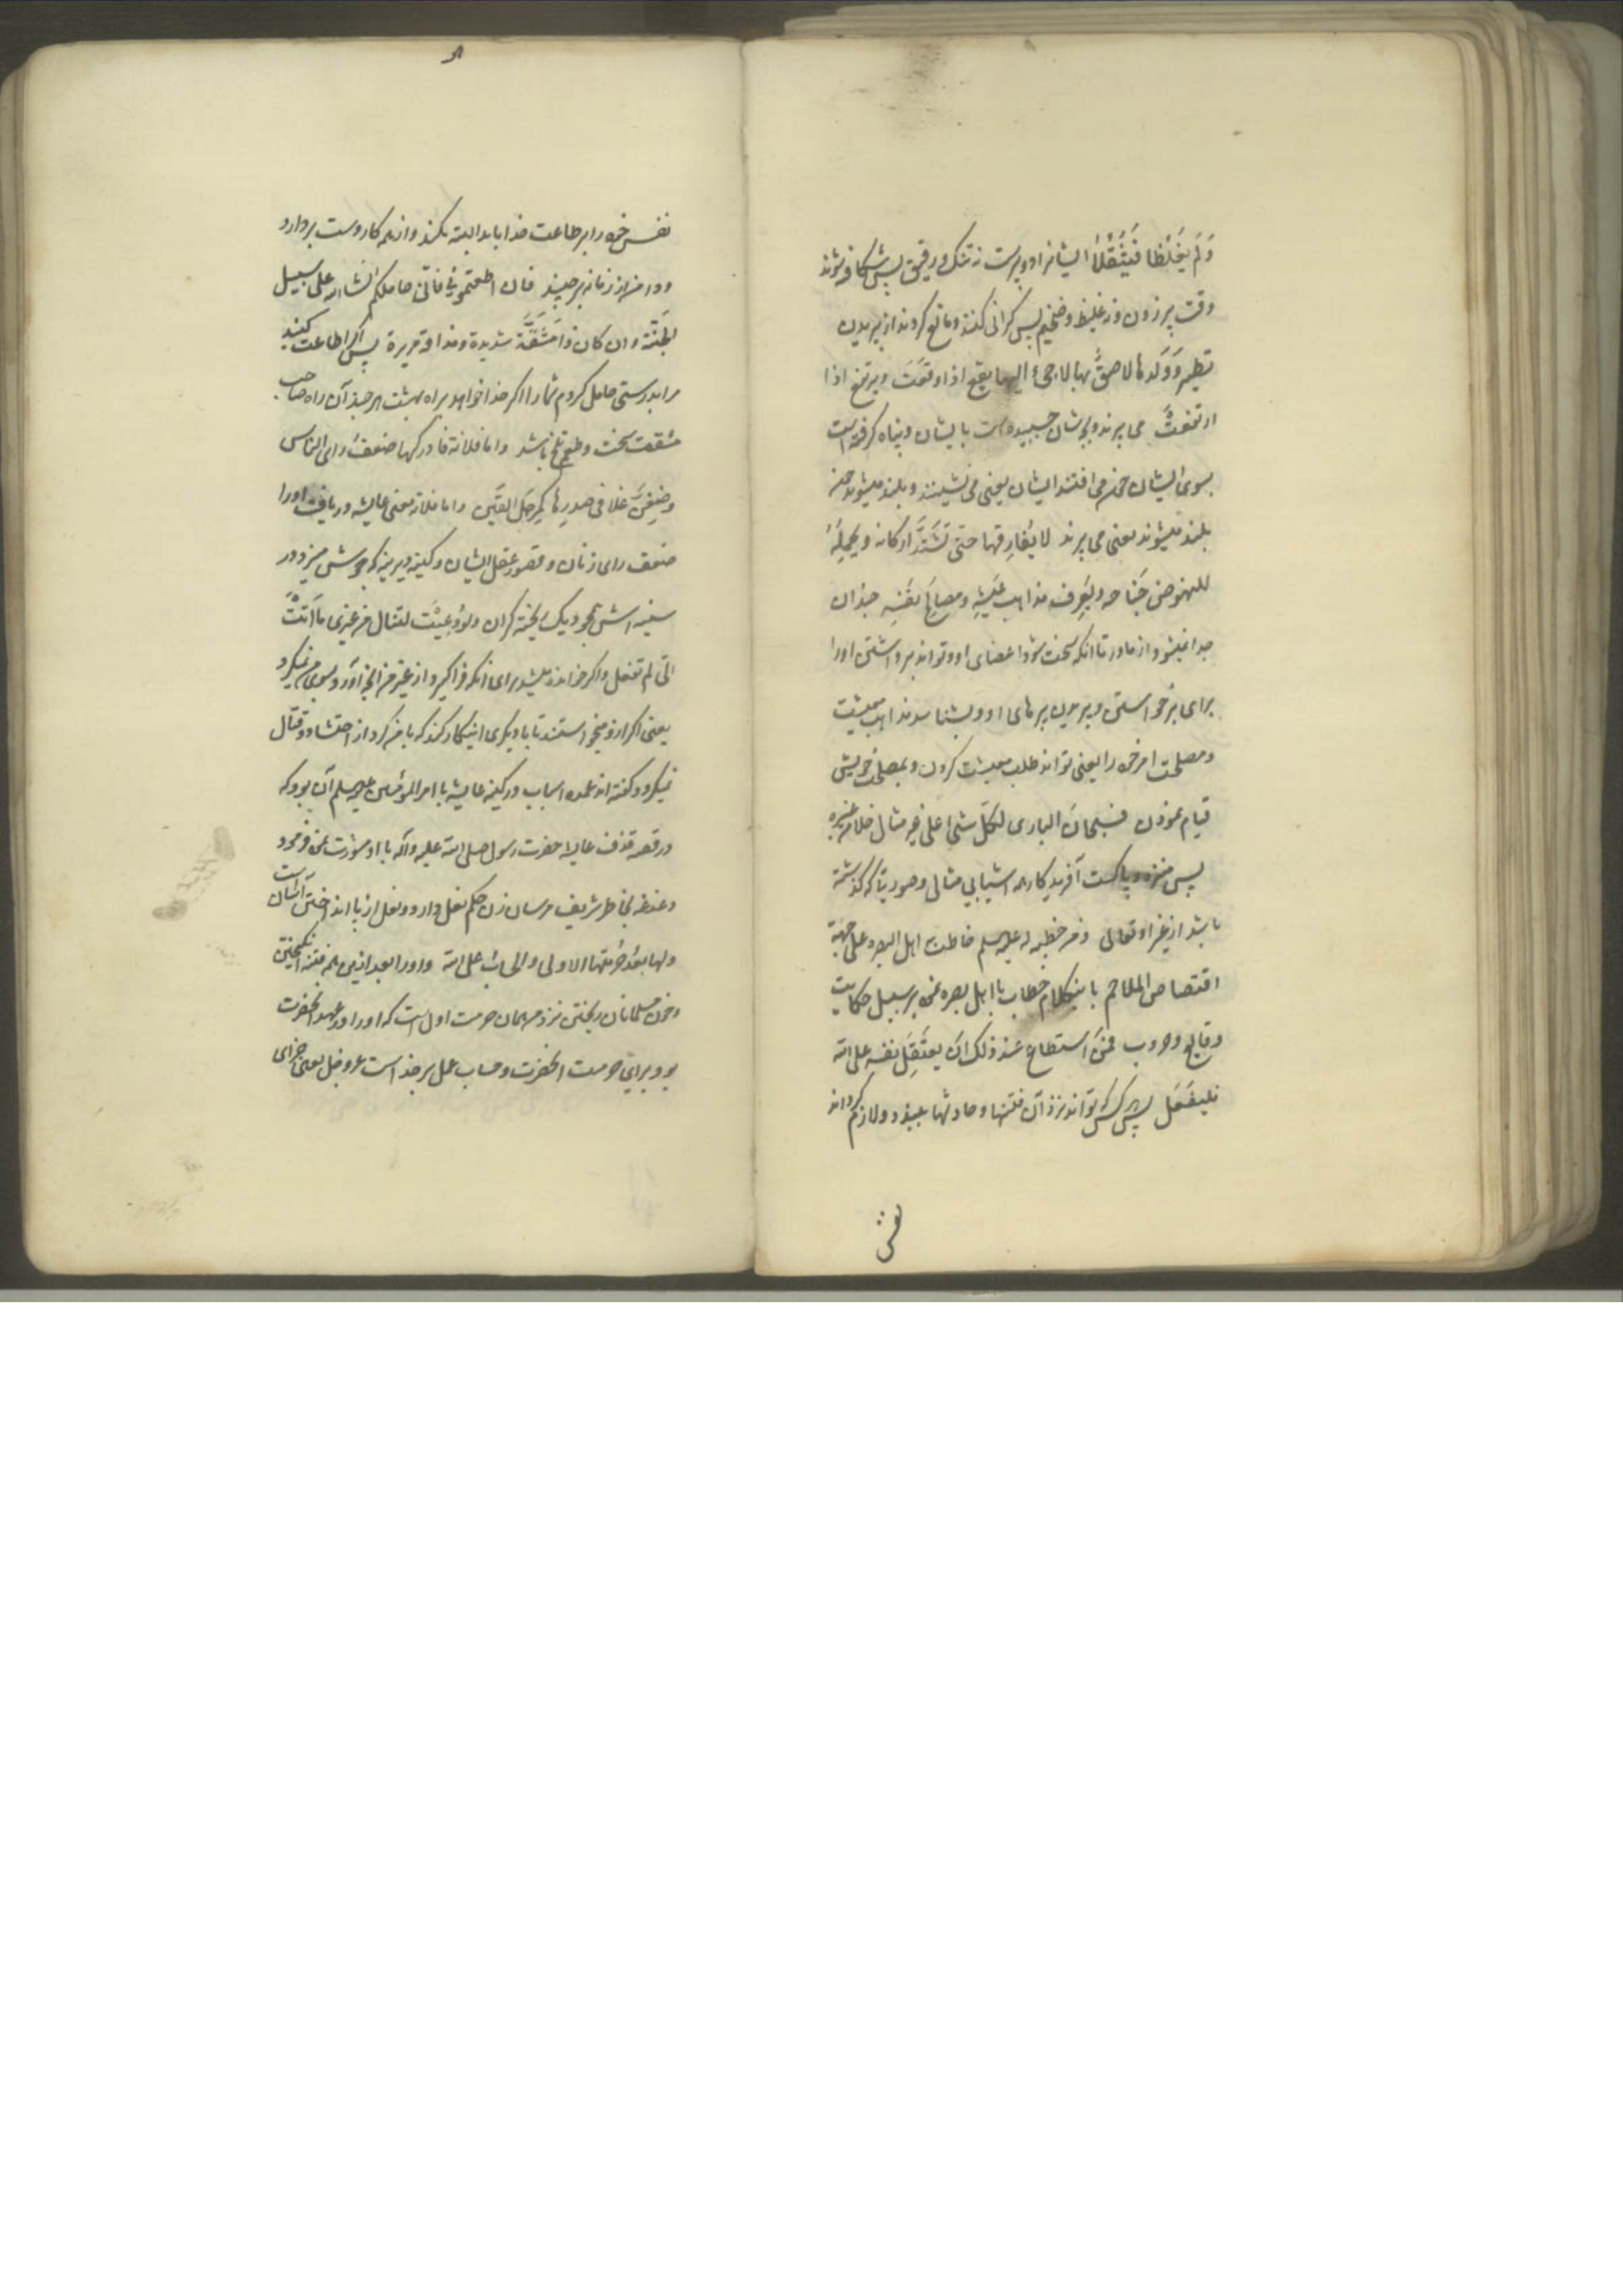 وَلَم یَغلُظا فَیَثقُلا ایشانرا دو پرست نه تنک و رقیق پس شکافته شوند
وقت پر زدن و نه غلیظ و ضخیم پس کرانی کنند و مانع کردند از پریدن
تطیر وَوَلَدها لاصِقٌ بها لاجیٌ الیها یقع اذا وقَعَت و یرتفع اذا
ارتفعَت می پرند و بچه شان چسپیده است بایشان و پناه کرفته است
بسوی ایشان می افتند ایشان یعنی می نشینند و بلند میشوند چون
بلند میشوند یعنی می پرند لا یُفارِقها حتی تَشتَدَّ ارکانه و یحمِلَهُ
للنهوض جَناحه و یَعرِف مذاهب عَیشِهِ و مصالحَ نَفسِهِ چندان
جدا نمیشود از مادر تا آنکه سخت شود اعضای او و تواند برداشتن او را
برای برخواستن و پریدن پرهای او و بشناسد مذاهب معیشت
و مصلحت امر خود را یعنی تواند طلب معیشت کردن و بمصلحت خویش
قیام نمودن فسبحانَ الباری لکلّ شیٍ علی غیر مثال خلا من غیره
پس منزه و پاکست آفریدکار همه اشیا بی مثالی و صورتی که کذشته
باشد از غیر او تعالی و من خطبه له علیه السلم خاطب به اهل البصره علی جهة
اقتصاص الملاحم باینکلام خطاب با اهل بصره نموده بر سبیل حکایت
وقایع و حروب فمَن استطاع عند ذلک ان یعتَقِلَ نفسه علی الله
فلیفعَل پس هر کس که تواند نزد آن فتنها و حادثها ببندد و لازم کرداند
نفس
نفس خود را بر طاعت خدا باید البته بکند و از همه کار دست بردارد
و دامن از زمانه برچیند فان اطعتمونی فانّی حاملکم انشاء الله علی سبیل
الجَنّة و ان کان ذا مَشَقَّة شدیدة و مذاقة مریرة پس اگر اطاعت کنید
مرا بدرستی حامل کردم شما را اکر خدا خواهد براه بهشت هر چند آن راه صاحب
مشقت سخت و طعم تلخ باشد و اما فلانة فادرکها ضعفُ رای النساء
وضِغنٌ غلا فی صدرِها کمِرجَل القَین و اما فلانه یعنی عایشه دریافت او را
ضعف رای زنان و قصور عقل ایشان و کینه دیرینه که جوش میزد در
سینه اش همچو دیک پخته کران ولو دُعِیَت لتنال من غیری ما اَتَت
الیّ لم تفعل و اکر خوانده میشد برای آنکه فرا کیرد از غیر من آنچه آورد بسوی من نمیکرد
یعنی اکر ازو میخواستند تا با دیکری اینکار کند که با من کرد از احتشاد و قتال
نمیکرد و کفته اند عمده اسباب در کینه عایشه با امیر المومنین علیه السلم آن بود که
در قصه قذف عایشه حضرت رسول صلی الله علیه و آله با او مشورت نموده فرمود
دغدغه بخاطر شریف مرسان زن حکم نعل دارد و نعل از پا انداختن آسان است
ولها بعدُ حُرمَتها الاولی والحسابُ علی الله و او را بعد ازین همه فتنه انکیختن
و خون مسلمانان ریختن نزد من همان حرمت اول است که او را در عهد آنحضرت
بود برای حرمت آنحضرت و حساب عمل بر خداست عز و جل یعنی جزای